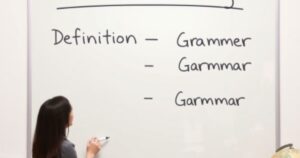 Definition – Grammer
- Garmmar
- Garmmar